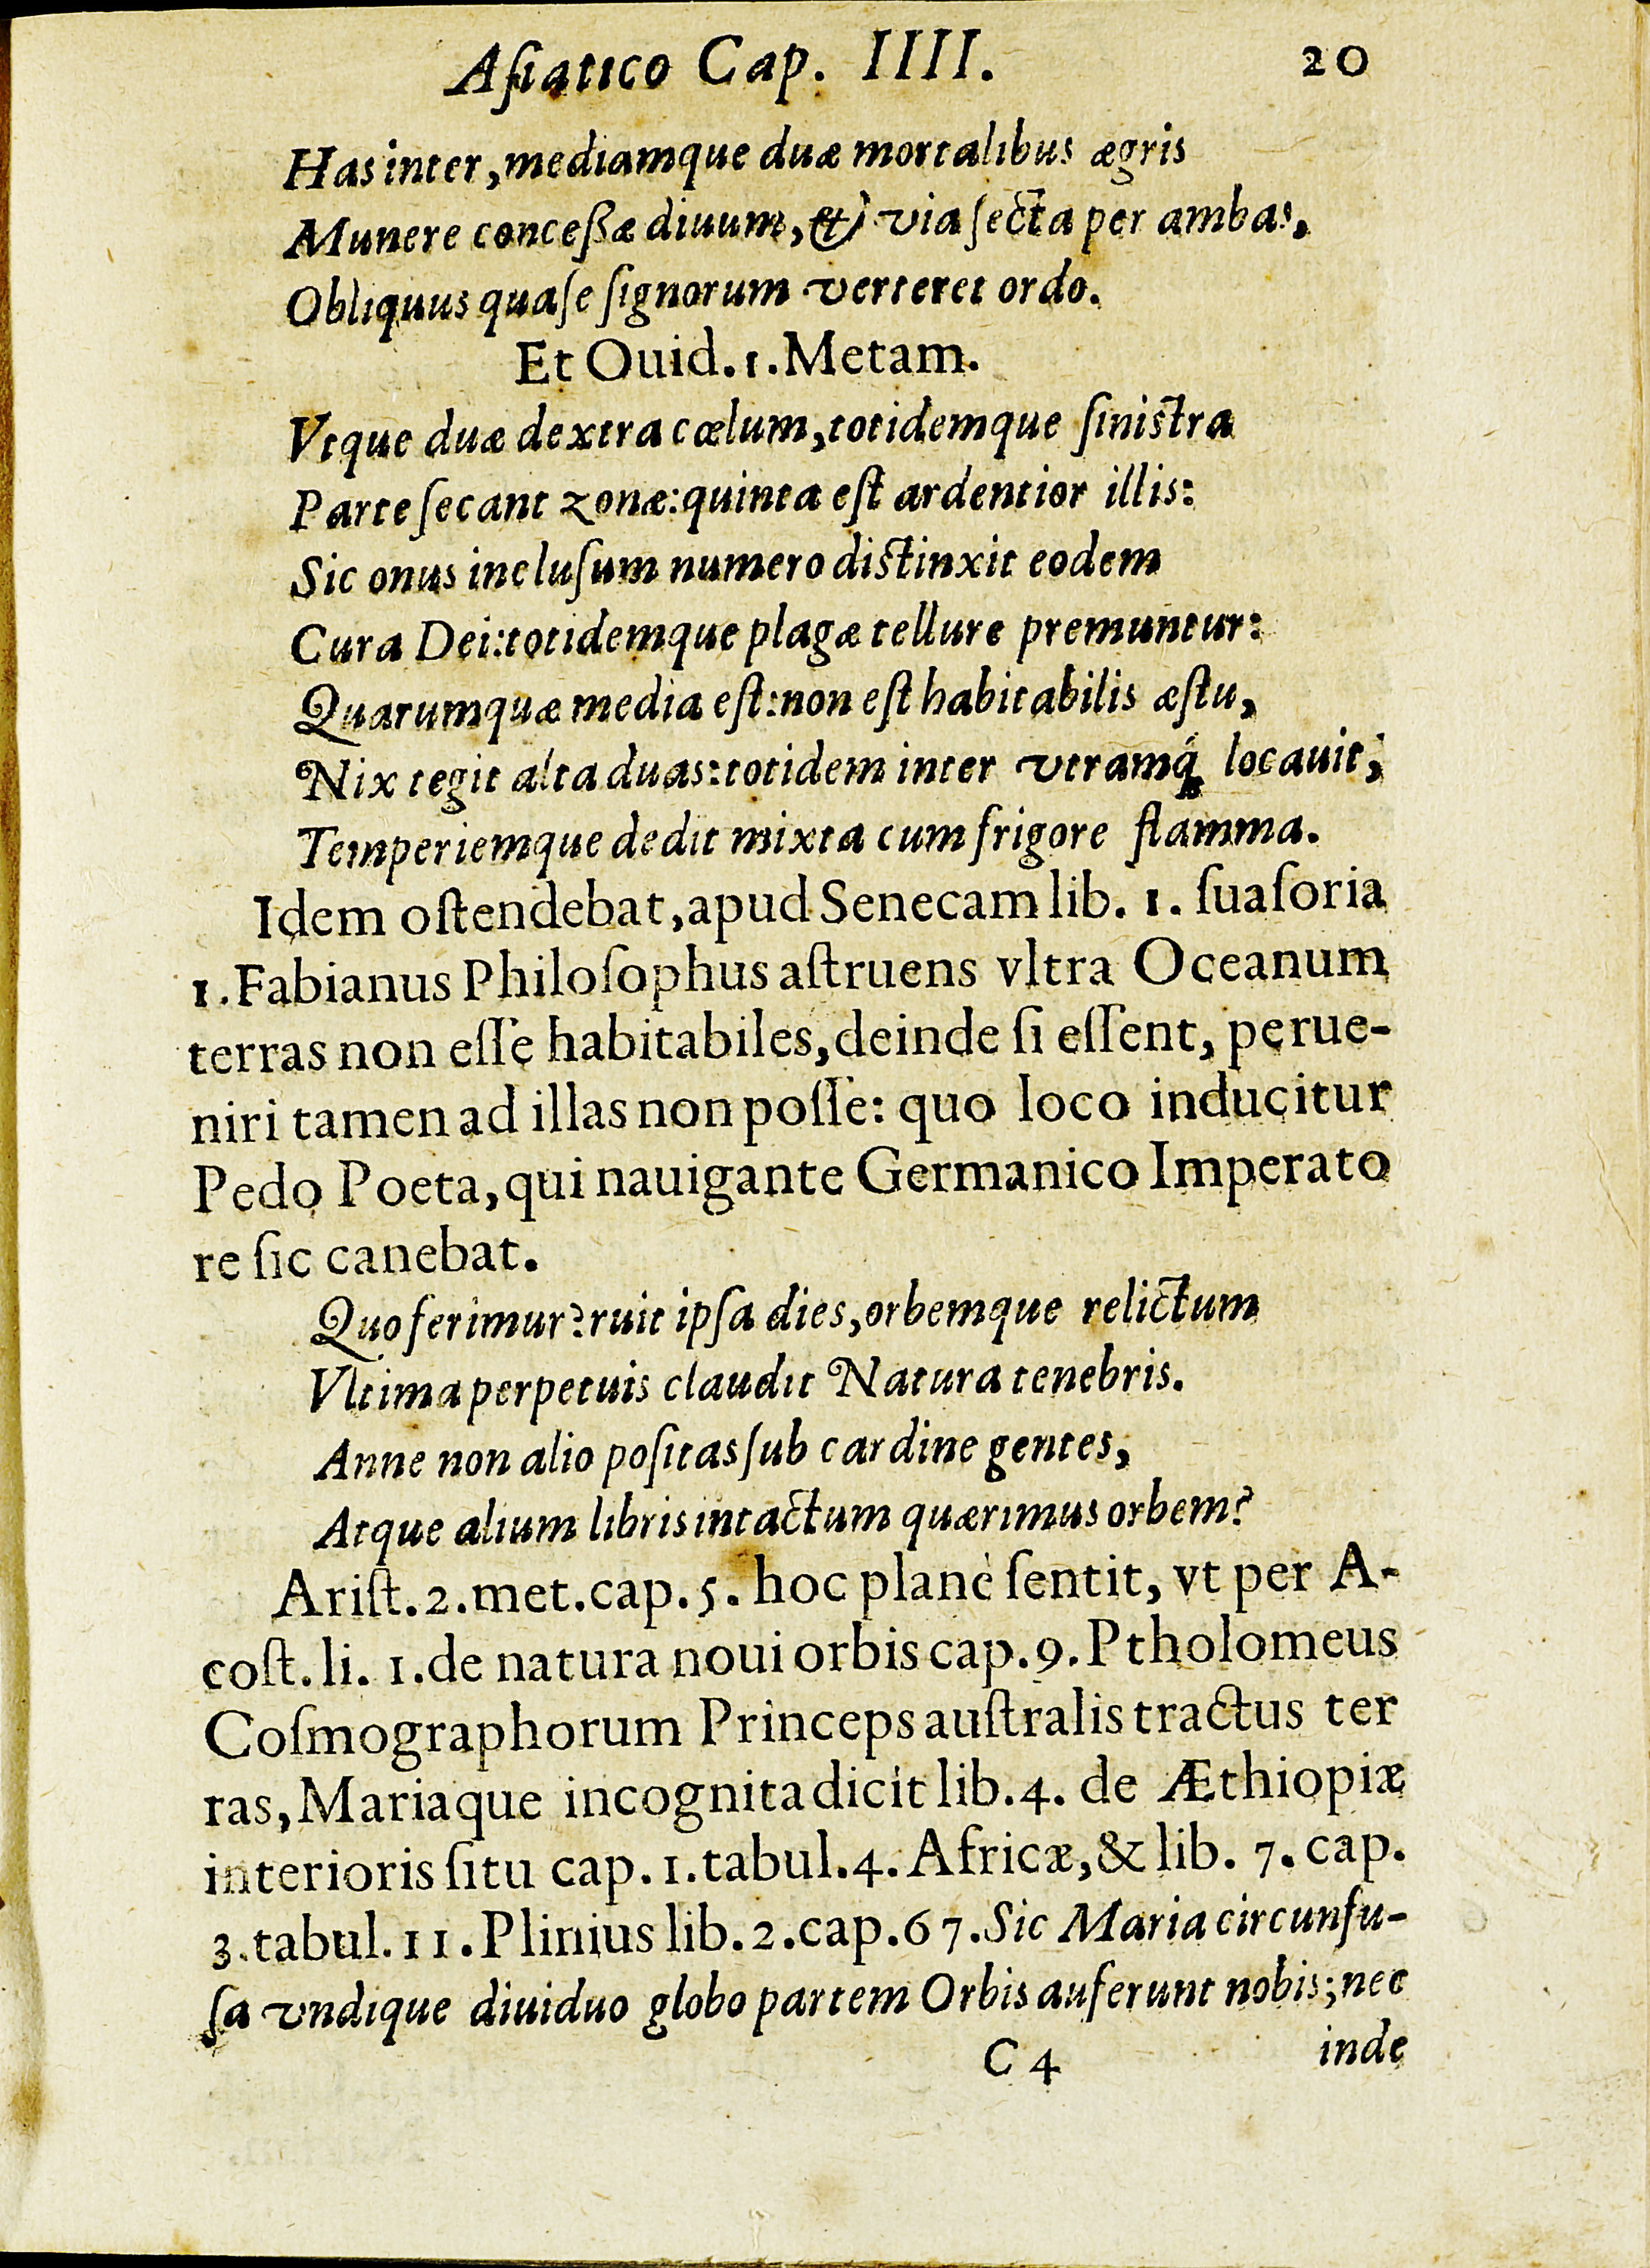 Aſiatico Cap. IIII. 20
Has inter, mediamque duæ mortalibus ægris
Munere conceßæ diuum, & via ſecta per ambas,
Obliquus qua ſe ſignorum verteret ordo.
Et Ouid. 1. Metam.
Vtque duæ dextra cœlum, totidemque ſiniſtra
Parte ſecant zonæ: quinta eſt ardentior illis:
Sic onus incluſum numero diſtinxit eodem
Cura Dei: totidemque plagæ tellure premuntur:
Quarumquæ media eſt: non eſt habitabilis æſtu,
Nix tegit alta duas: totidem inter vtramq́; locauit,
Temperiemque dedit mixta cum frigore flamma.
Idem oſtendebat, apud Senecam lib. 1. ſuaſoria
1. Fabianus Philoſophus aſtruens vltra Oceanum
terras non eſſe habitabiles, deinde ſi eſſent, perue-
niri tamen ad illas non poſſe: quo loco inducitur
Pedo Poeta, qui nauigante Germanico Imperato
re ſic canebat.
Quo ferimur? ruit ipſa dies, orbemque relictum
Vltima perpetuis claudit Natura tenebris.
Anne non alio poſitas ſub cardine gentes,
Atque alium libris intactum quærimus orbem?
Ariſt. 2. met. cap. 5. hoc planè ſentit, vt per A-
coſt. li. 1. de natura noui orbis cap. 9. Ptholomeus
Coſmographorum Princeps auſtralis tractus ter
ras, Mariaque incognita dicit lib. 4. de Æthiopiæ
interioris ſitu cap. 1. tabul. 4. Africæ, & lib. 7. cap.
3. tabul. 11. Plinius lib. 2. cap. 67. Sic Maria circunfu-
ſa vndique diuiduo globo partem Orbis auferunt nobis; nec
C 4 inde